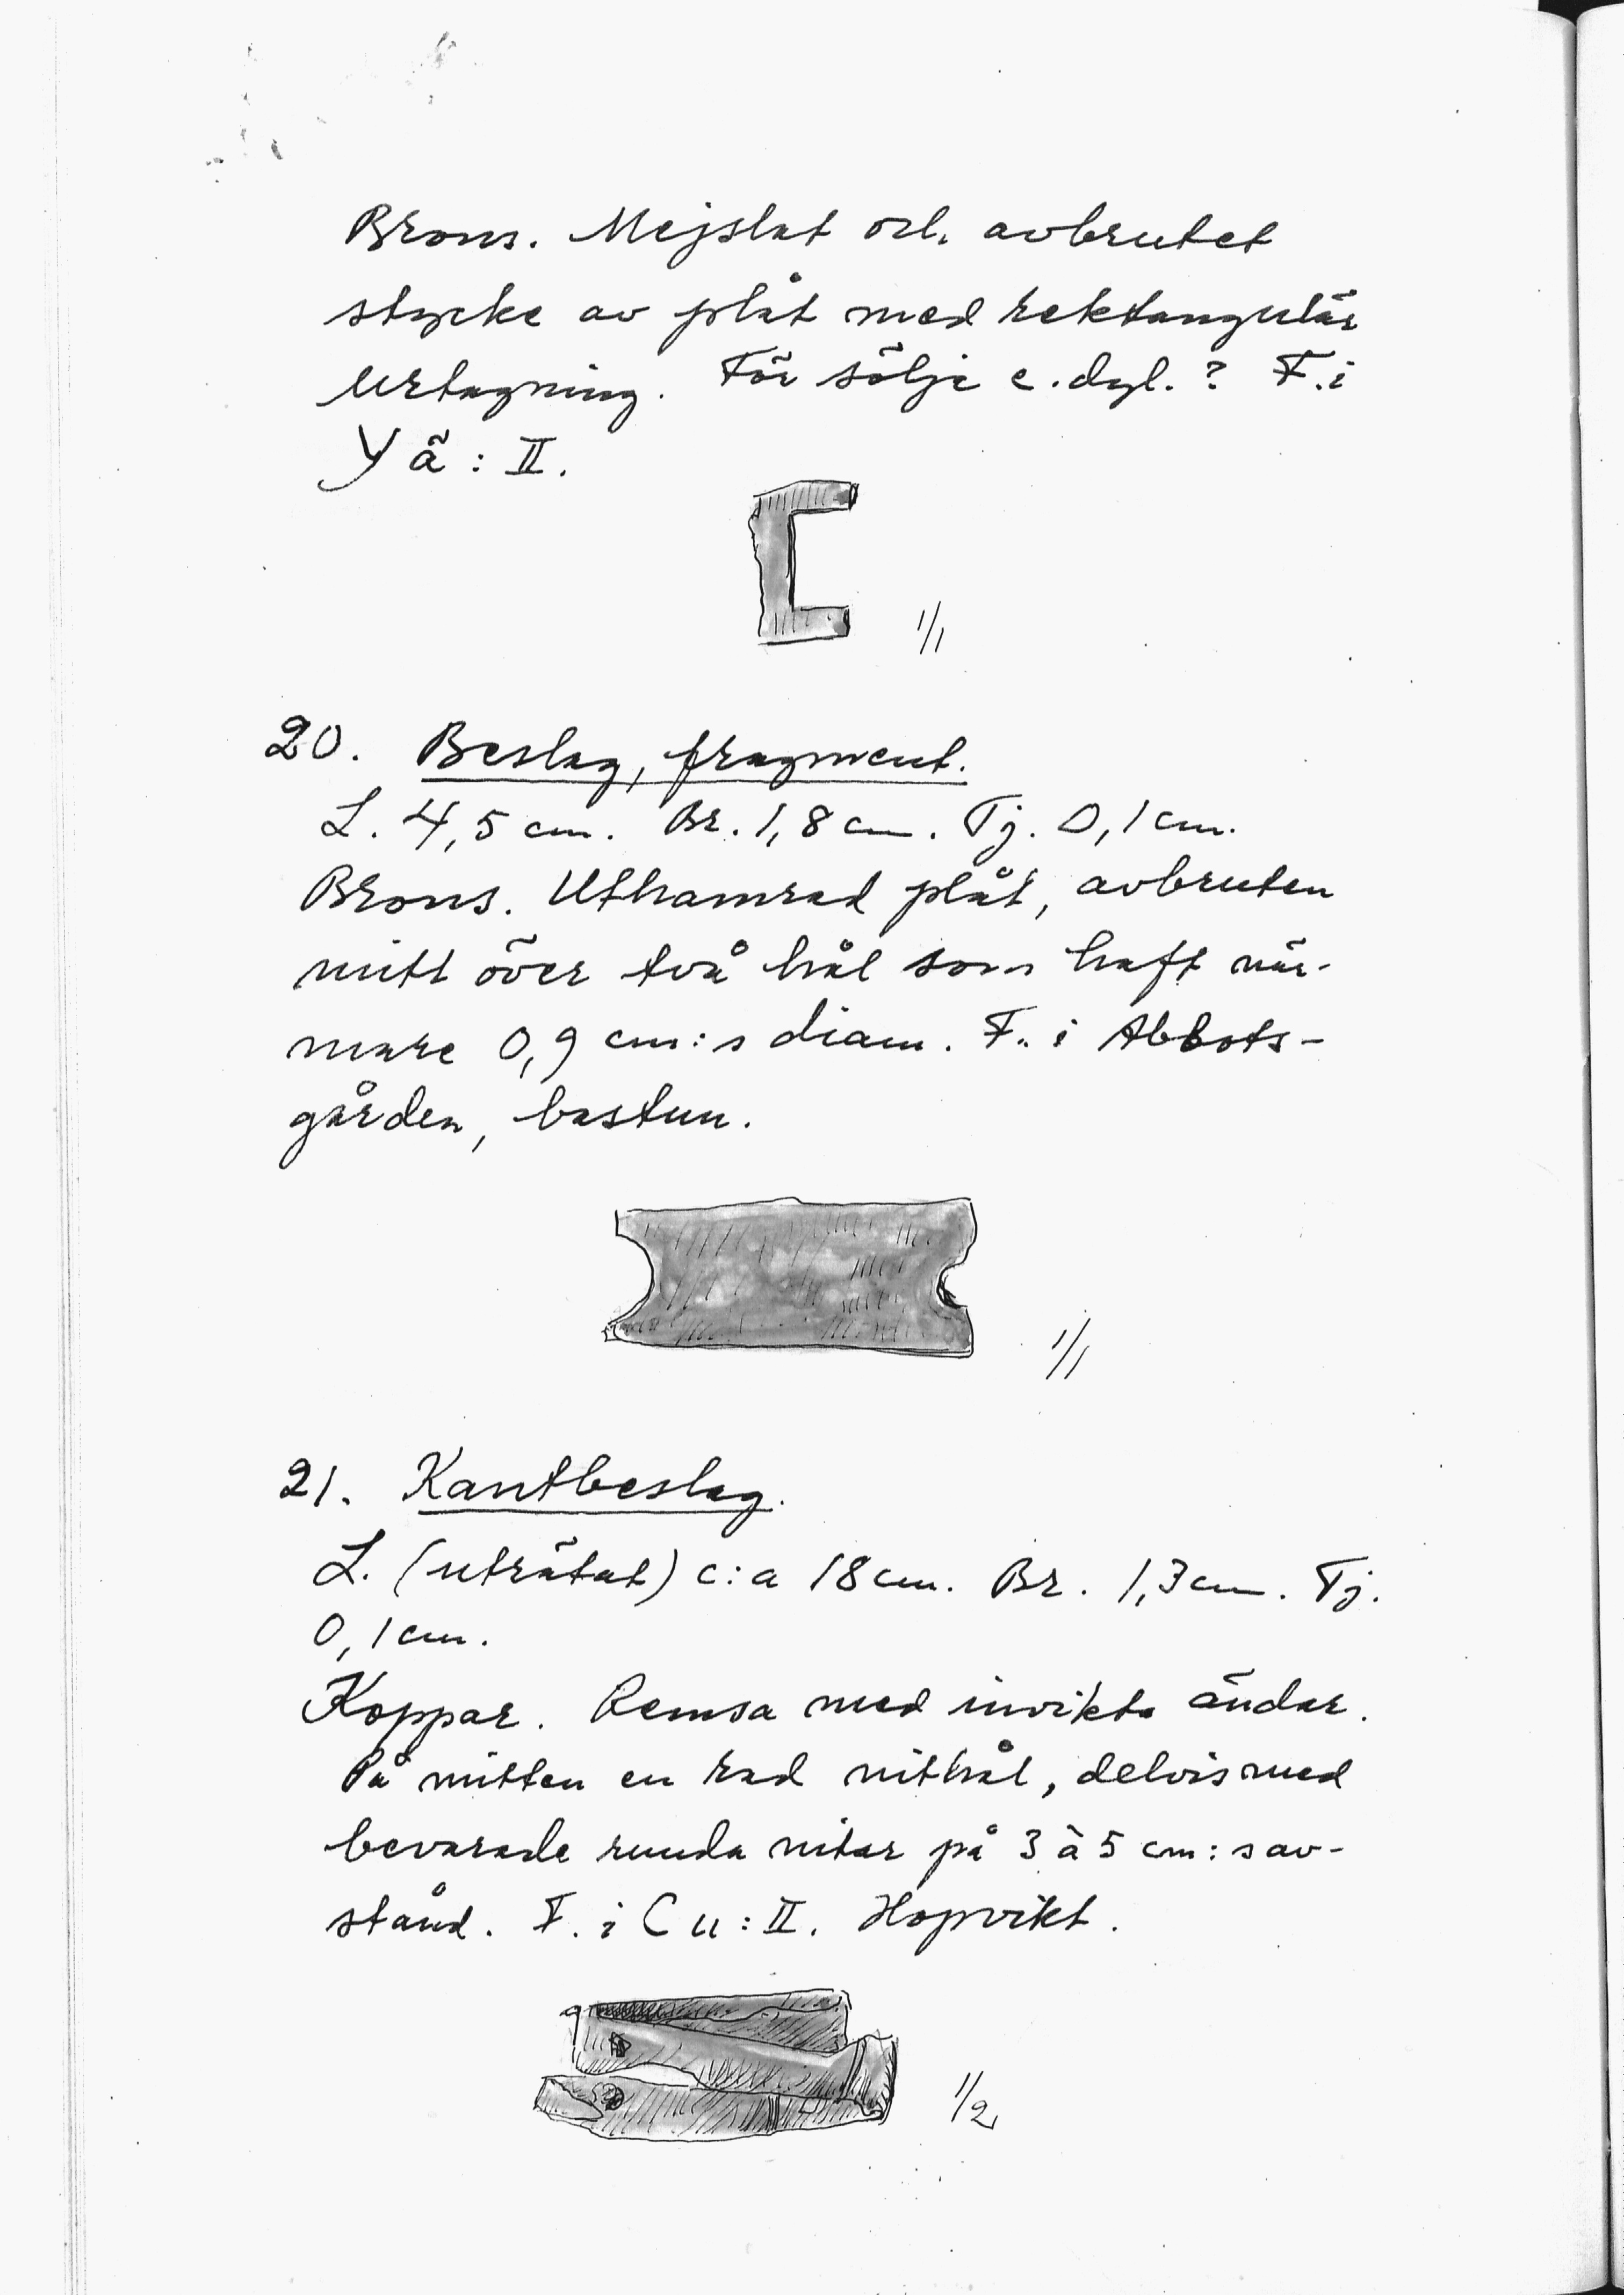 Brons. Mejslat och avbrutet
stycke av plåt med rektangulär
urtagning. För sölje e. dyl. ? F. i
Y ä : II.
1/1
20. Beslag, fragment.
L. 4,5 cm. Br. 1,8 cm. Tj. 0,1 cm.
Brons. Uthamrad plåt, avbruten
mitt över två hål som haft när-
mare 0,9 cm:s diam. F. i Abbots-
gården, bastun.
1/1
21. Kantbeslag.
L. (uträtat) c:a 18 cm. Br. 1,3 cm. Tj.
0,1 cm.
Koppar. Remsa med invikta ändar.
På mitten en rad nithål, delvis med
bevarade runda nitar på 3 à 5 cm:s av-
stånd. F. i C u : II. Hopvikt.
1/2